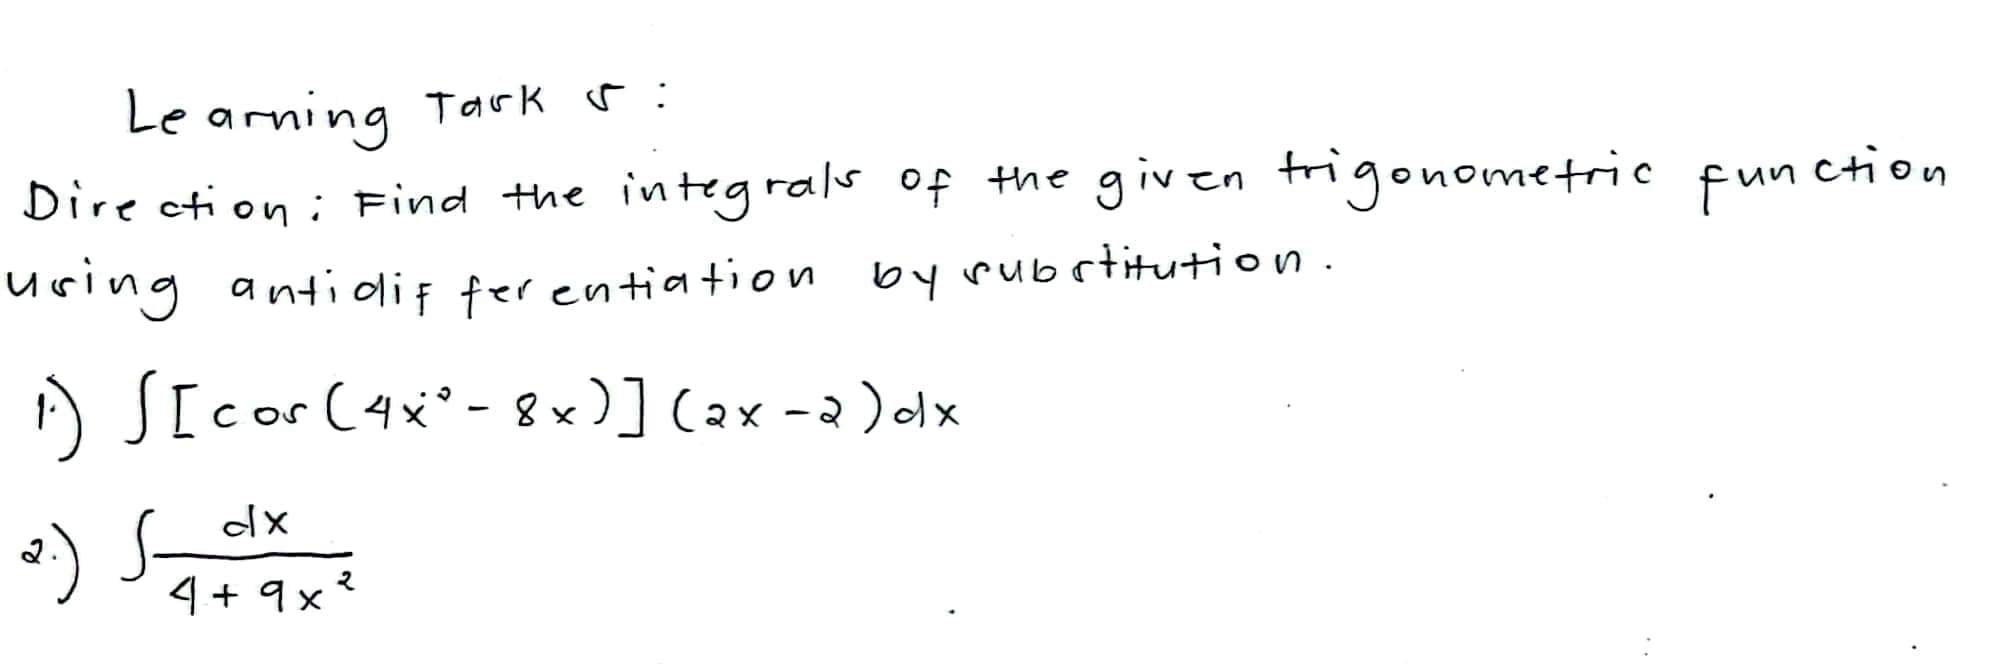 Learning Task 5 :
Direction : Find the integrals of the given trigonometric function
using antidifferentiation by substitution.
1.) ∫[cos(4x² - 8x)] (2x - 2)dx
2.) ∫ dx
4 + 9x²